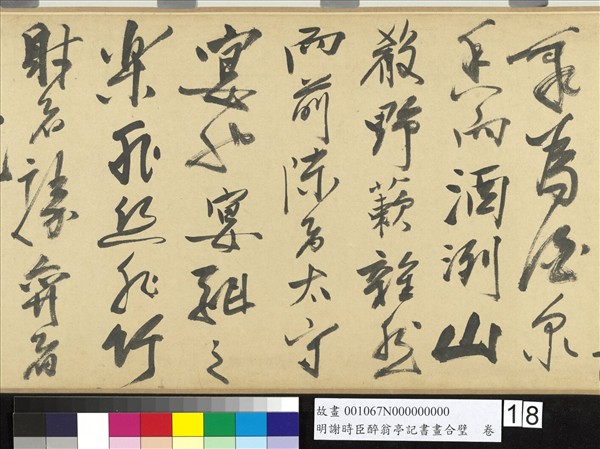 泉為酒泉
香而酒洌山
殽野蔌雜然
而前陳者太守
宴也宴酣之
樂非絲非竹
射者勝弈者
故畫 001067N000000000
明謝時臣醉翁亭記書畫合璧 卷
18